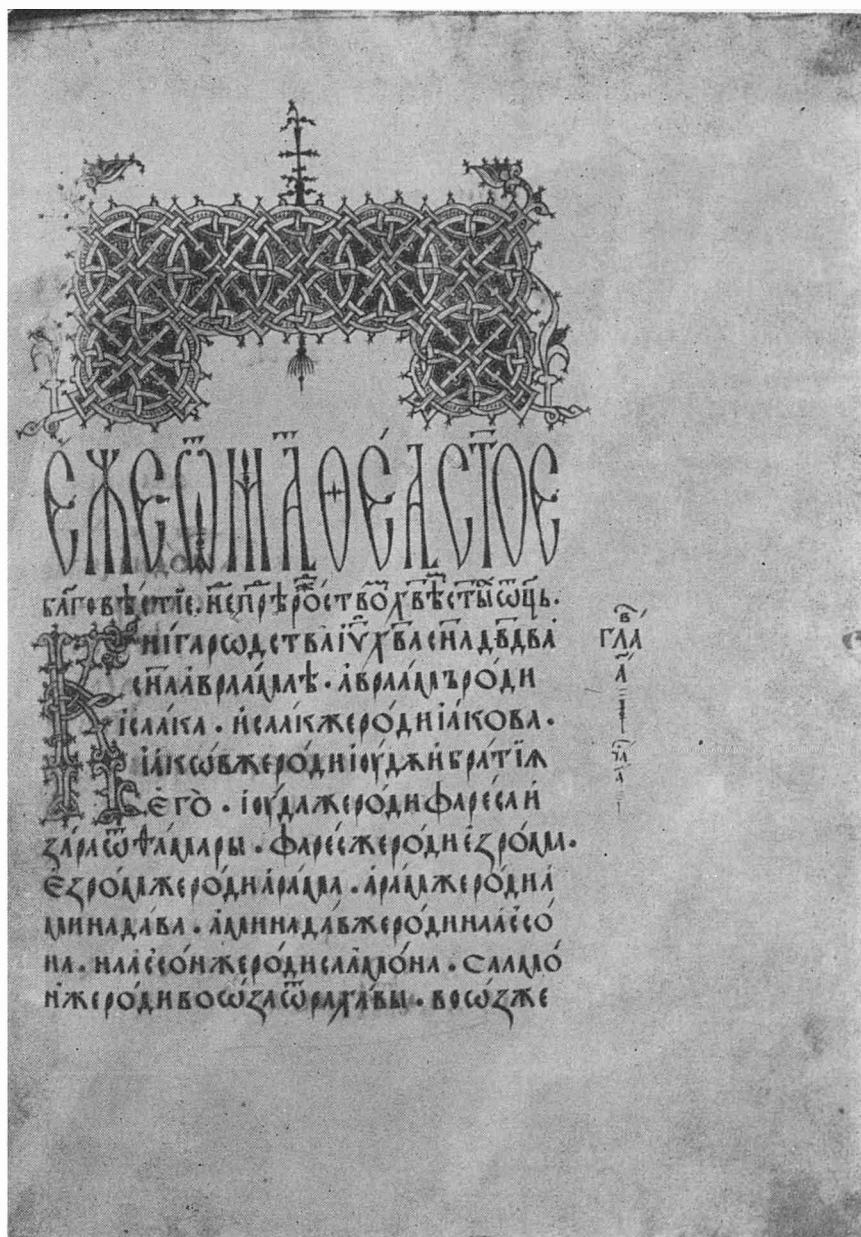 Е҆ЖЕ Ѿ МАⷮѲЕ́А СТ҃ОЕ
бл҃говѣствїе. нєⷣ прѣⷤ роⷤство хв҃ѣ ст҃ыⷯ ѡц҃ь.
Кни́га рѡдства і҆ѵ҃ х҃ва сн҃а дв҃два
сн҃а авраа́млѣ. а҆враа́мъ ро́ди
і҆саа́ка. и҆саа́кже ро́ди і҆а́кова.
і҆а́кѡвже ро́ди і҆ꙋ́дꙋ и҆ братїѧ
є҆го̀. і҆ꙋ́даже ро́ди фаре́са и҆
за́ра ѿ ѳама́ры. фаре́сже ро́ди є҆зро́ма.
є҆зро́мже ро́ди а҆ра́ма. а҆ра́мже ро́ди а҆
минада́ва. а҆минада́вже ро́ди наассѡ́
на. наассо́нже ро́ди салмо́на. салмо́
нже ро́ди воѡ́за ѿ раха́вы. воѡ́зже
гла́